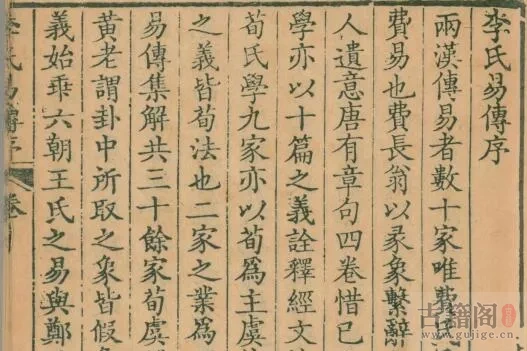 李氏易傳序
兩漢傳易者數十家唯費氏
費易也費長翁以彖象繫辭
人遺意唐有章句四卷惜已
學亦以十篇之義詮釋經文
荀氏學九家亦以荀爲主虞
之義皆荀法也二家之業爲
易傳集解共三十餘家荀虞
黃老謂卦中所取之象皆假
義始乖六朝王氏之易與鄭
氏易傳序
古籍阁
www.gujige.cn